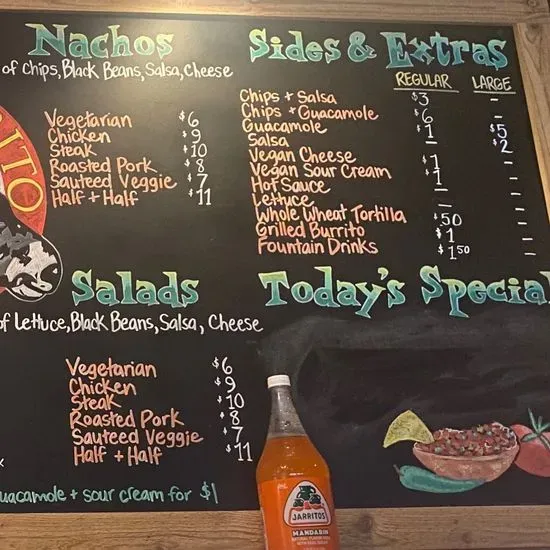 Nachos
of Chips, Black Beans, Salsa, Cheese
Vegetarian $6
Chicken $9
Steak $10
Roasted Pork $8
Sauteed Veggie $7
Half + Half $11
Salads
of Lettuce, Black Beans, Salsa, Cheese
Vegetarian $6
Chicken $9
Steak $10
Roasted Pork $8
Sauteed Veggie $7
Half + Half $11
uacamole + sour cream for $1
Sides & Extras
REGULAR LARGE
Chips + Salsa $3 –
Chips + Guacamole $6 –
Guacamole $1 $5
Salsa – $2
Vegan Cheese $1 –
Vegan Sour Cream $1 –
Hot Sauce
Lettuce – –
Whole Wheat Tortilla $.50 –
Grilled Burrito $1 –
Fountain Drinks $1.50 –
Today's Special
JARRITOS
MANDARIN